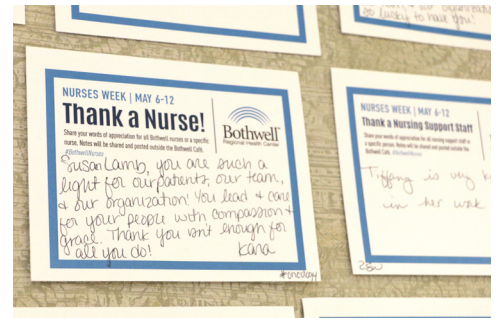 so lucky to have you!
NURSES WEEK | MAY 6-12
Thank a Nurse!
Share your words of appreciation for all Bothwell nurses or a specific
nurse. Notes will be shared and posted outside the Bothwell Café.
#BothwellNurses
Bothwell
Regional Health Center
Susan Lamb, you are such a
light for our patients, our team,
& our organization! You lead & care
for your people with compassion &
grace. Thank you isn't enough for
all you do!
Kana
#oncology
NURSES WEEK | MAY 6-12
Thank a Nursing Support Staff
Share your words of appreciation for all nursing support staff or
a specific person. Notes will be shared and posted outside the
Bothwell Café. #BothwellNurses
Tiffany is very
in her work